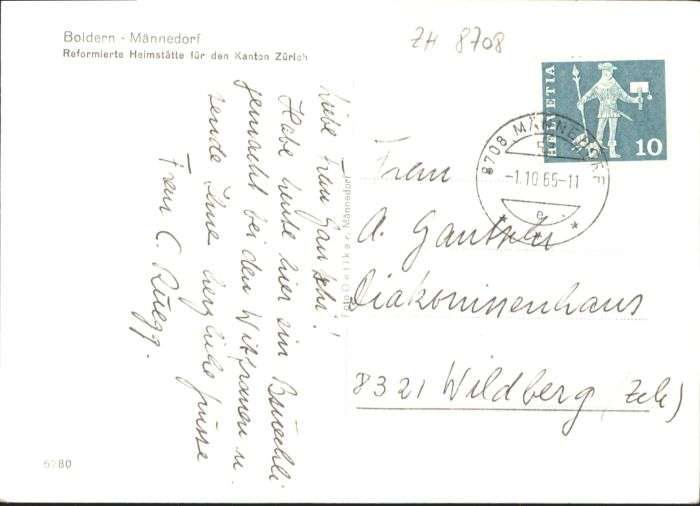 Boldern - Männedorf
Reformierte Heimstätte für den Kanton Zürich
ZH 8708
HELVETIA
10
8708 MÄNNEDORF
-1.10.65-11
Liebe Frau Gautschi!
Habe heute hier ein Bsuechli
gemacht bei den Witfrauen u.
sende Ihnen herzliche Grüsse
Frau C. Rüegg.
Foto Oetiker Männedorf
Frau
A. Gautschi
Diakonissenhaus
8321 Wildberg (Zch)
6280